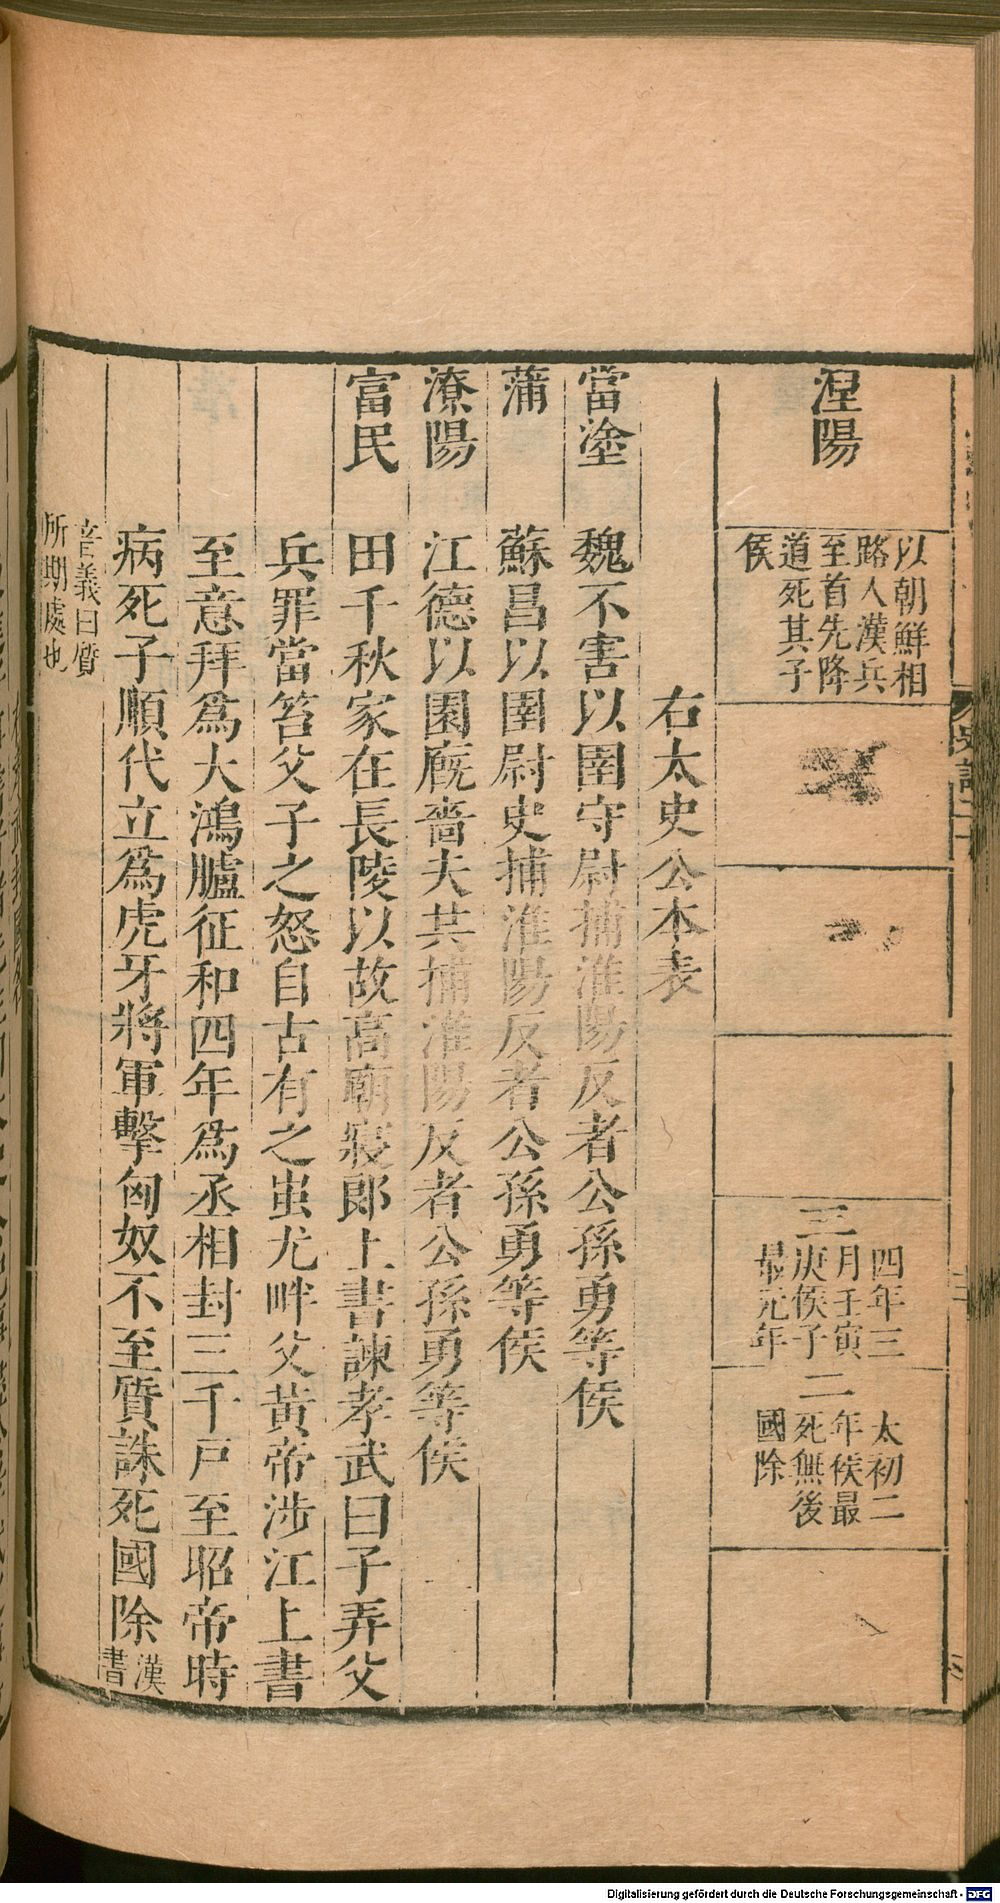 涅陽
以朝鮮相
路人漢兵
至首先降
道死其子
侯
三
四年三
月壬寅
庚侯子
最元年
二
太初二
年侯最
死無後
國除
右太史公本表
當塗 魏不害以圉守尉捕淮陽反者公孫勇等侯
蒲 蘇昌以圉尉史捕淮陽反者公孫勇等侯
潦陽 江德以園廐嗇夫共捕淮陽反者公孫勇等侯
富民 田千秋家在長陵以故高廟寢郎上書諫孝武曰子弄父
兵罪當笞父子之怒自古有之蚩尤畔父黃帝涉江上書
至意拜爲大鴻臚征和四年爲丞相封三千戶至昭帝時
病死子順代立爲虎牙將軍擊匈奴不至質誅死國除漢書
音義曰質
所期處也
Digitalisierung gefördert durch die Deutsche Forschungsgemeinschaft - DFG